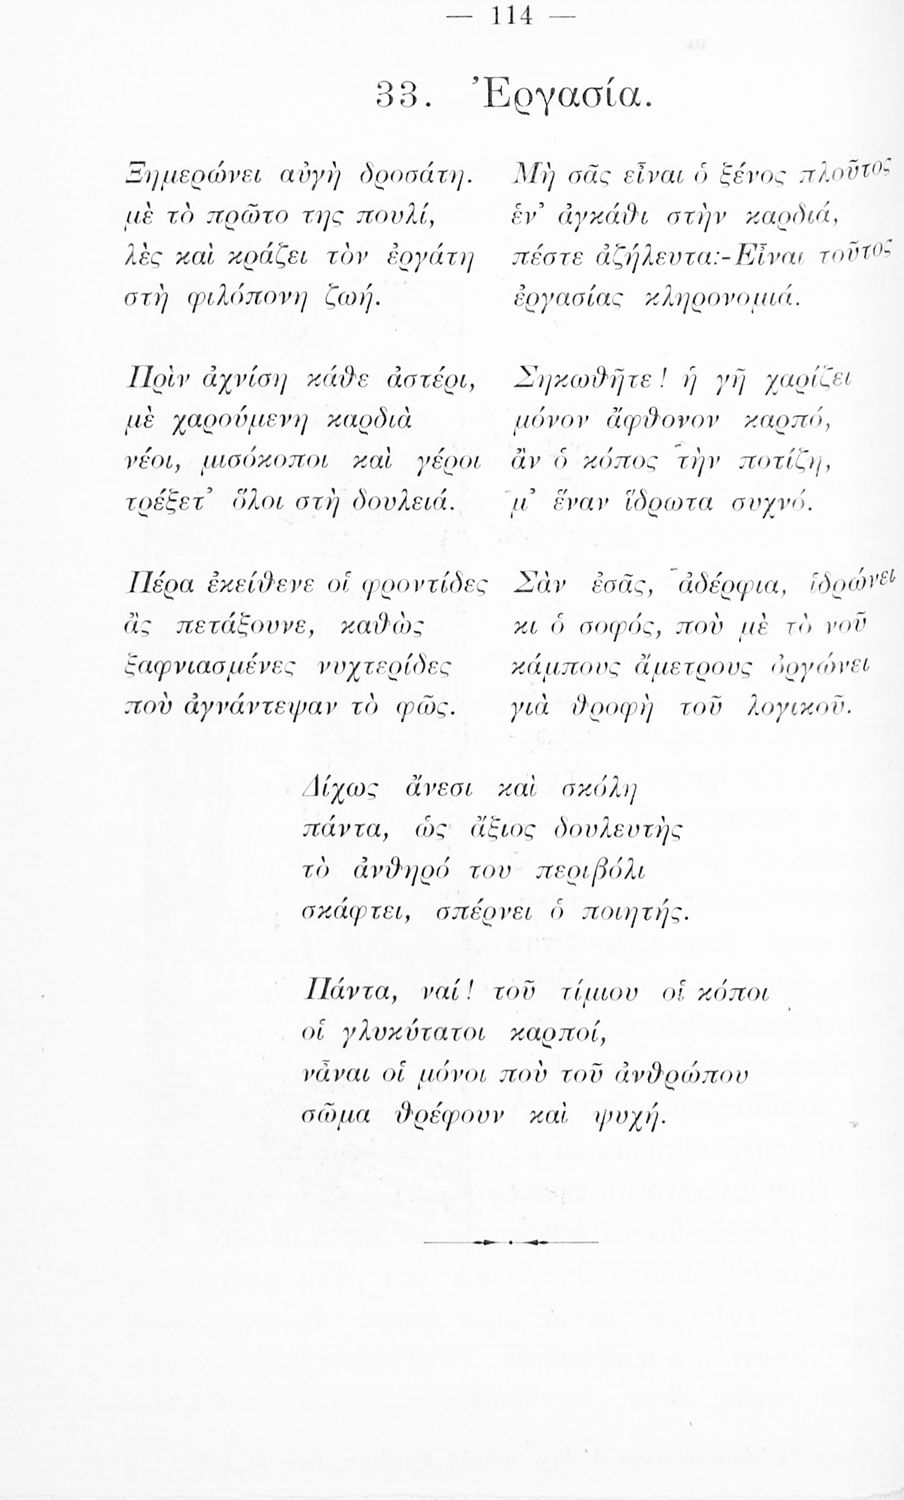 — 114 —
33. Ἐργασία.
Ξημερώνει αὐγὴ δροσάτη.
μὲ τὸ πρῶτο της πουλί,
λὲς καὶ κράζει τὸν ἐργάτη
στὴ φιλόπονη ζωή.
Πρὶν ἀχνίσῃ κάθε ἀστέρι,
μὲ χαρούμενη καρδιὰ
νέοι, μισόκοποι καὶ γέροι
τρέξετ' ὅλοι στὴ δουλειά.
Πέρα ἐκείθενε οἱ φροντίδες
ἂς πετάξουνε, καθὼς
ξαφνιασμένες νυχτερίδες
ποὺ ἀγνάντεψαν τὸ φῶς.
Μὴ σᾶς εἶναι ὁ ξένος πλοῦτος
ἑν' ἀγκάθι στὴν καρδιά,
πέστε ἀζήλευτα:-Εἶναι τοῦτος
ἐργασίας κληρονομιά.
Σηκωθῆτε! ἡ γῆ χαρίζει
μόνον ἄφθονον καρπό,
ἂν ὁ κόπος τὴν ποτίζῃ,
μ' ἕναν ἵδρωτα συχνό.
Σὰν ἐσᾶς, ἀδέρφια, ἱδρώνει
κι ὁ σοφός, ποὺ μὲ τὸ νοῦ
κάμπους ἄμετρους ὀργώνει
γιὰ θροφὴ τοῦ λογικοῦ.
Δίχως ἄνεσι καὶ σκόλη
πάντα, ὡς ἄξιος δουλευτὴς
τὸ ἀνθηρό του περιβόλι
σκάφτει, σπέρνει ὁ ποιητής.
Πάντα, ναί! τοῦ τίμιου οἱ κόποι
οἱ γλυκύτατοι καρποί,
νἆναι οἱ μόνοι ποὺ τοῦ ἀνθρώπου
σῶμα θρέφουν καὶ ψυχή.